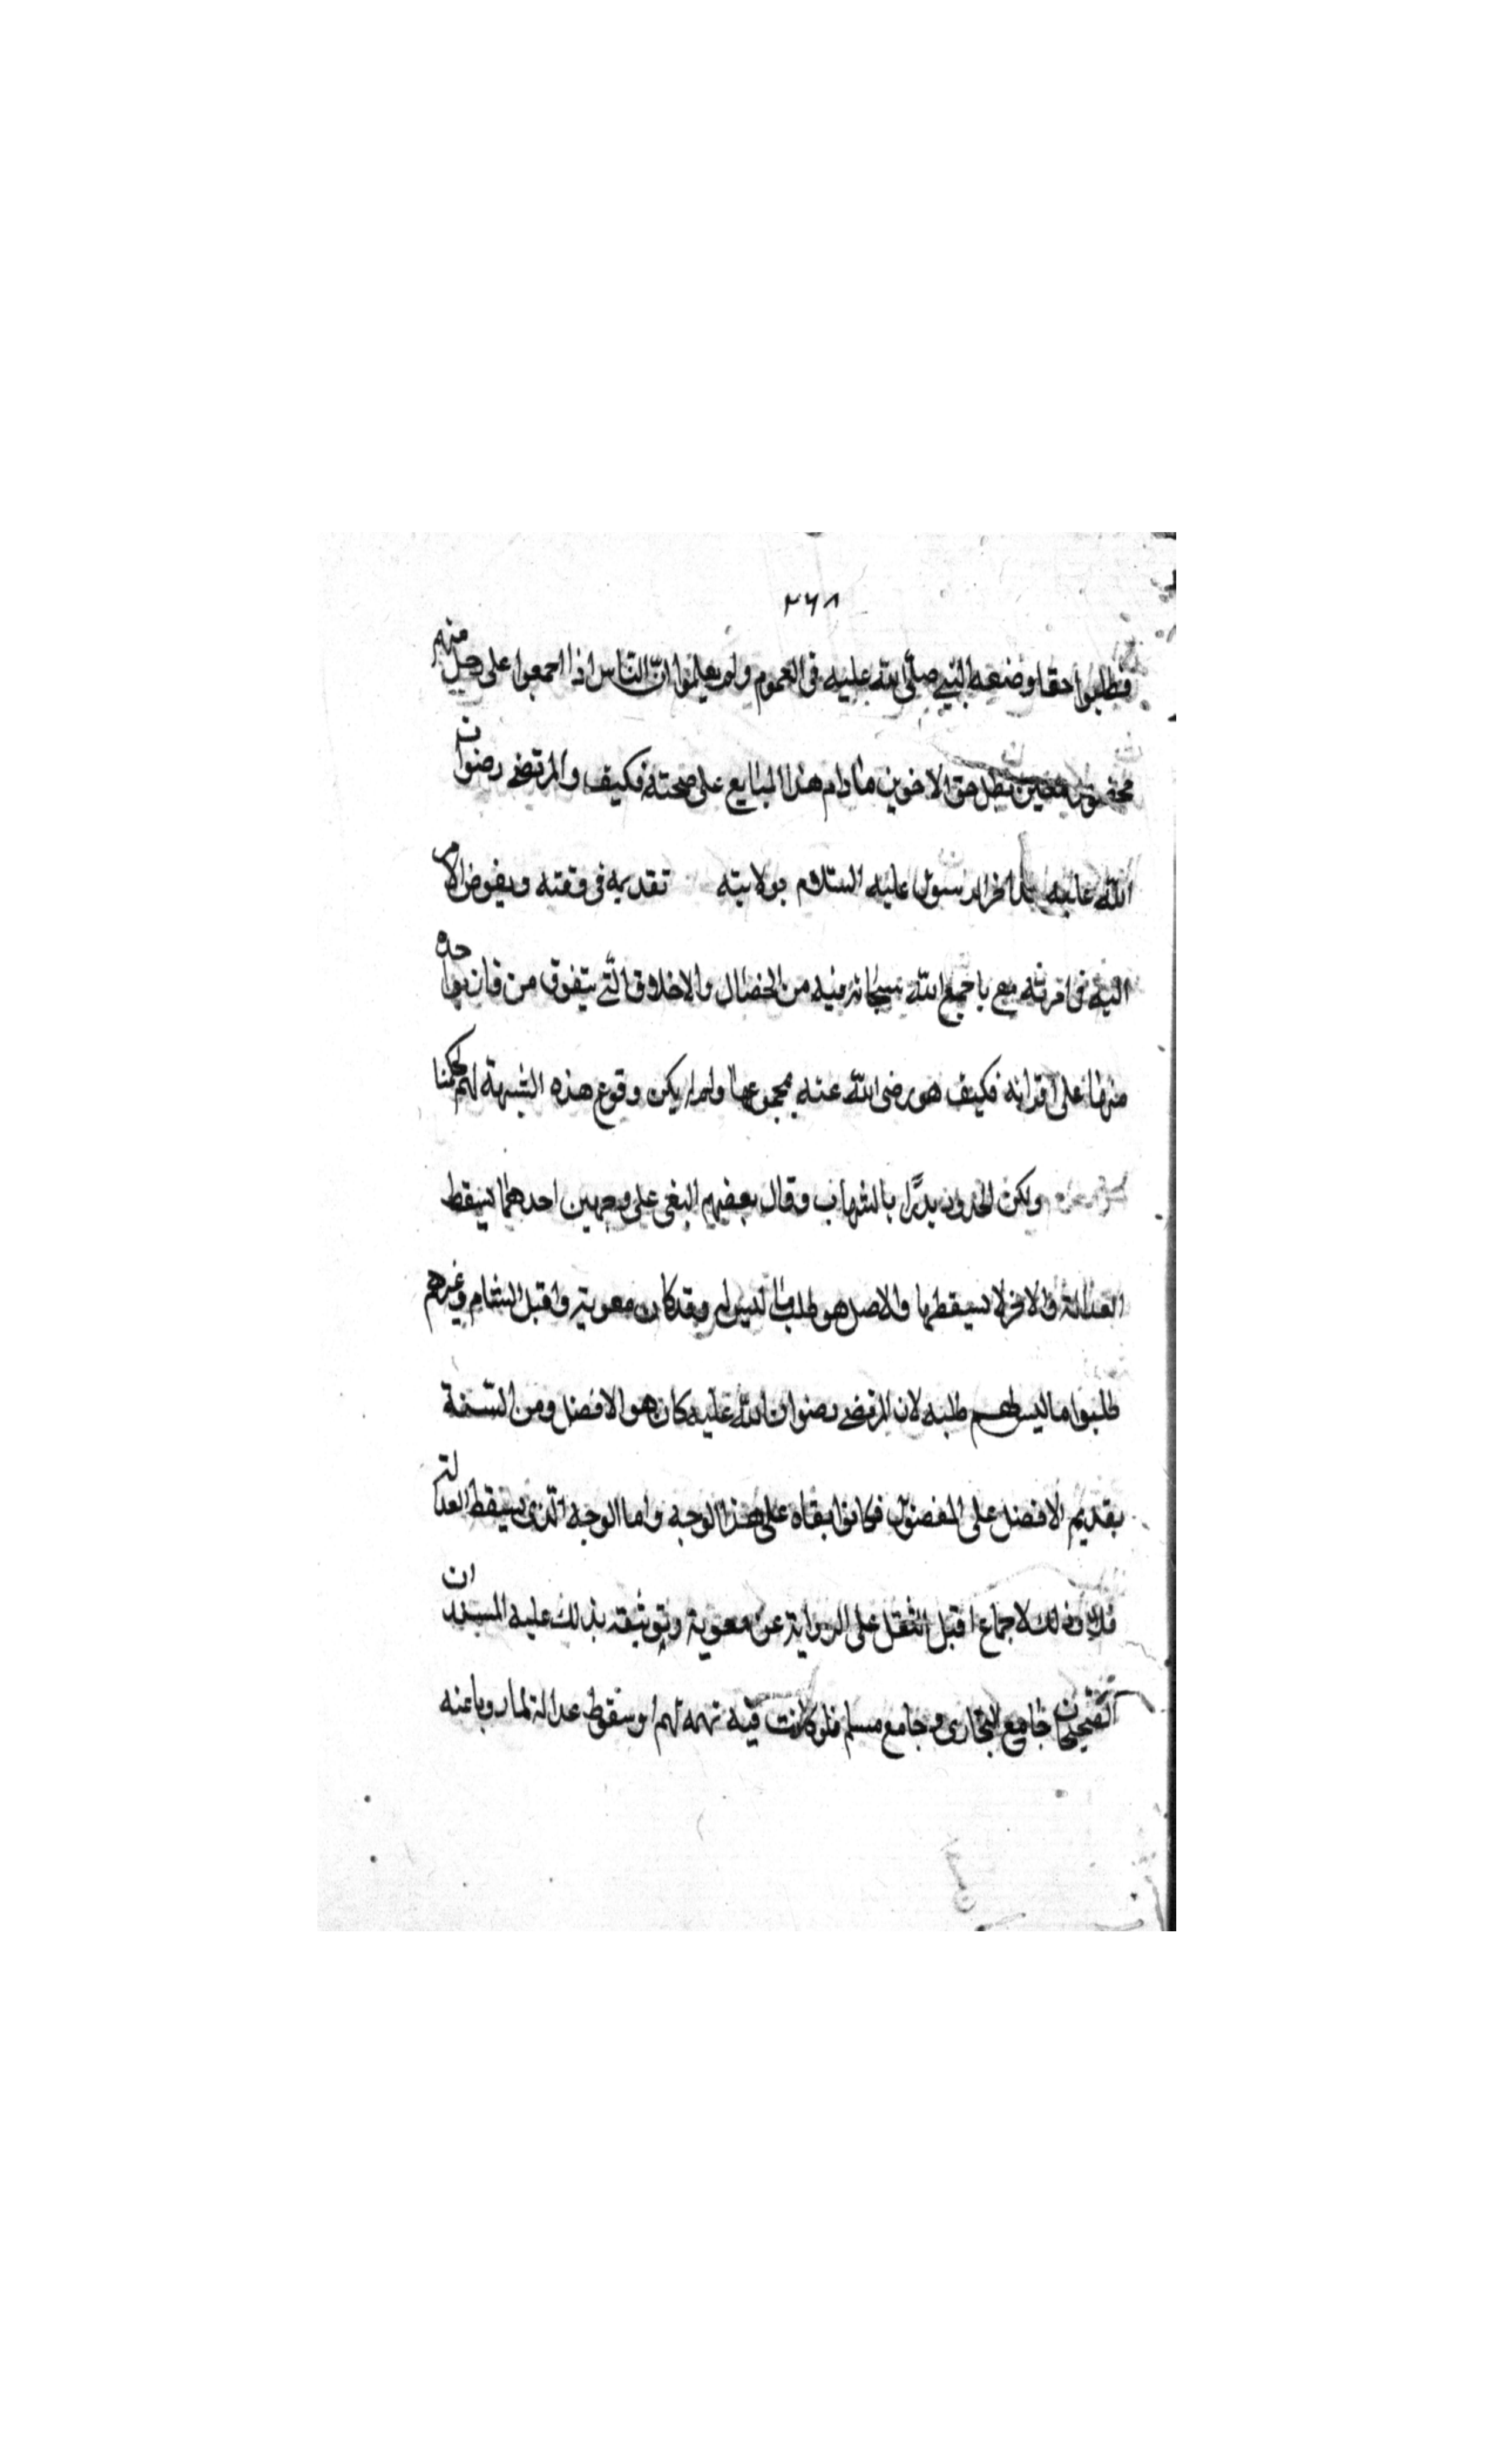 ٢٦٨
فطلبوا حقا وضعه النبي صلى الله عليه في العموم ولم يعلموا انّ الناس اذا اجمعوا على رجل منهم
بطل حق الاخرين ما دام هذا المبايع على صحته فكيف والمرتضى رضوان
الله عليه الرسول عليه السلام بولايته تقديمه في وقته ويفوض الامر
اليه في مع ما جمع الله سبحانه فيه من الخصال والاخلاق الّتي يتفوق من فاز بواحدة
منها على اقرانه فكيف هو رضى الله عنه بمجموعها ولم يكن وقوع هذه الشبهة لهم
ولكن الحدود يدرا بالشهاب وقال بعضهم البغى على وجهين احدهما يسقط
العدالة والاخر لا يسقطها والاصل هو طلب ما ليس له وقد كان معوية واقبل الشام وغيرهم
طلبوا ما ليس لهم طلبه لان المرتضى رضوان الله عليه كان هو الافضل ومن السّنة
بقديم الافضل على المفضول فكانوا بقاه على هذا الوجه واما الوجه الّذى يسقط العدالة
فلا وذلك لاجماع اقبل النقل على الرواية عن معوية وتوثيقه بذلك عليه المسندان
الصحيحان جامع البخارى وجامع مسلم فلو كانت فيه تهمة لهم او سقوط عدالة لما رويا عنه